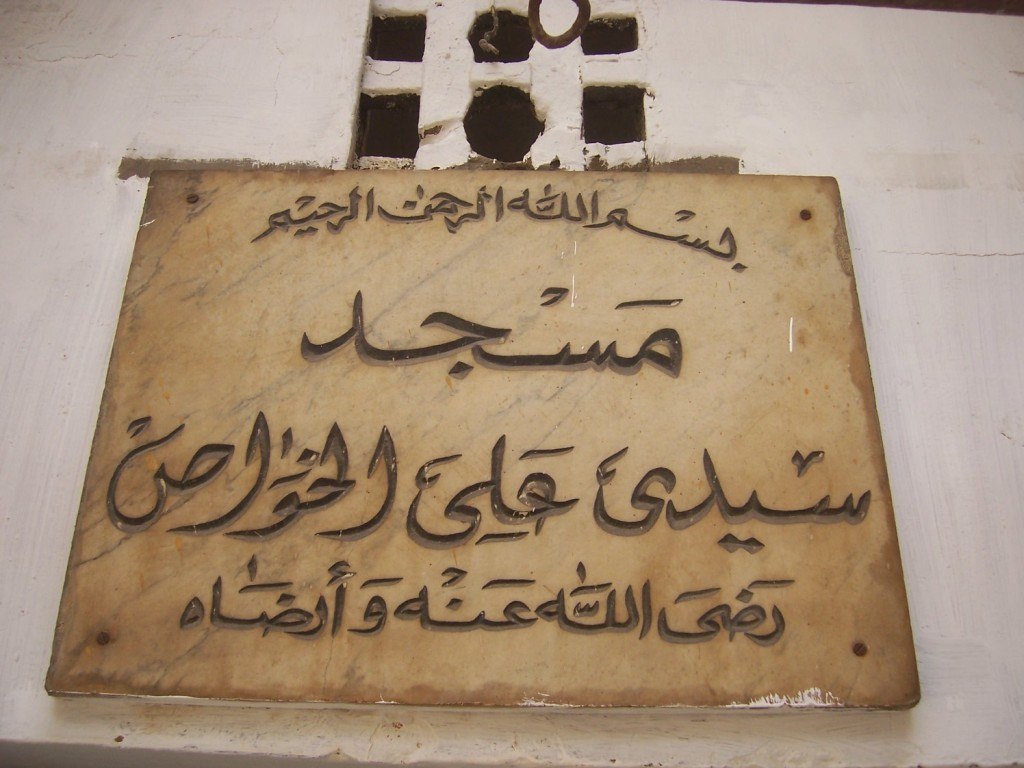 بسم الله الرحمن الرحيم
مسجد
سيدى على الخواص
رضى الله عنه وأرضاه